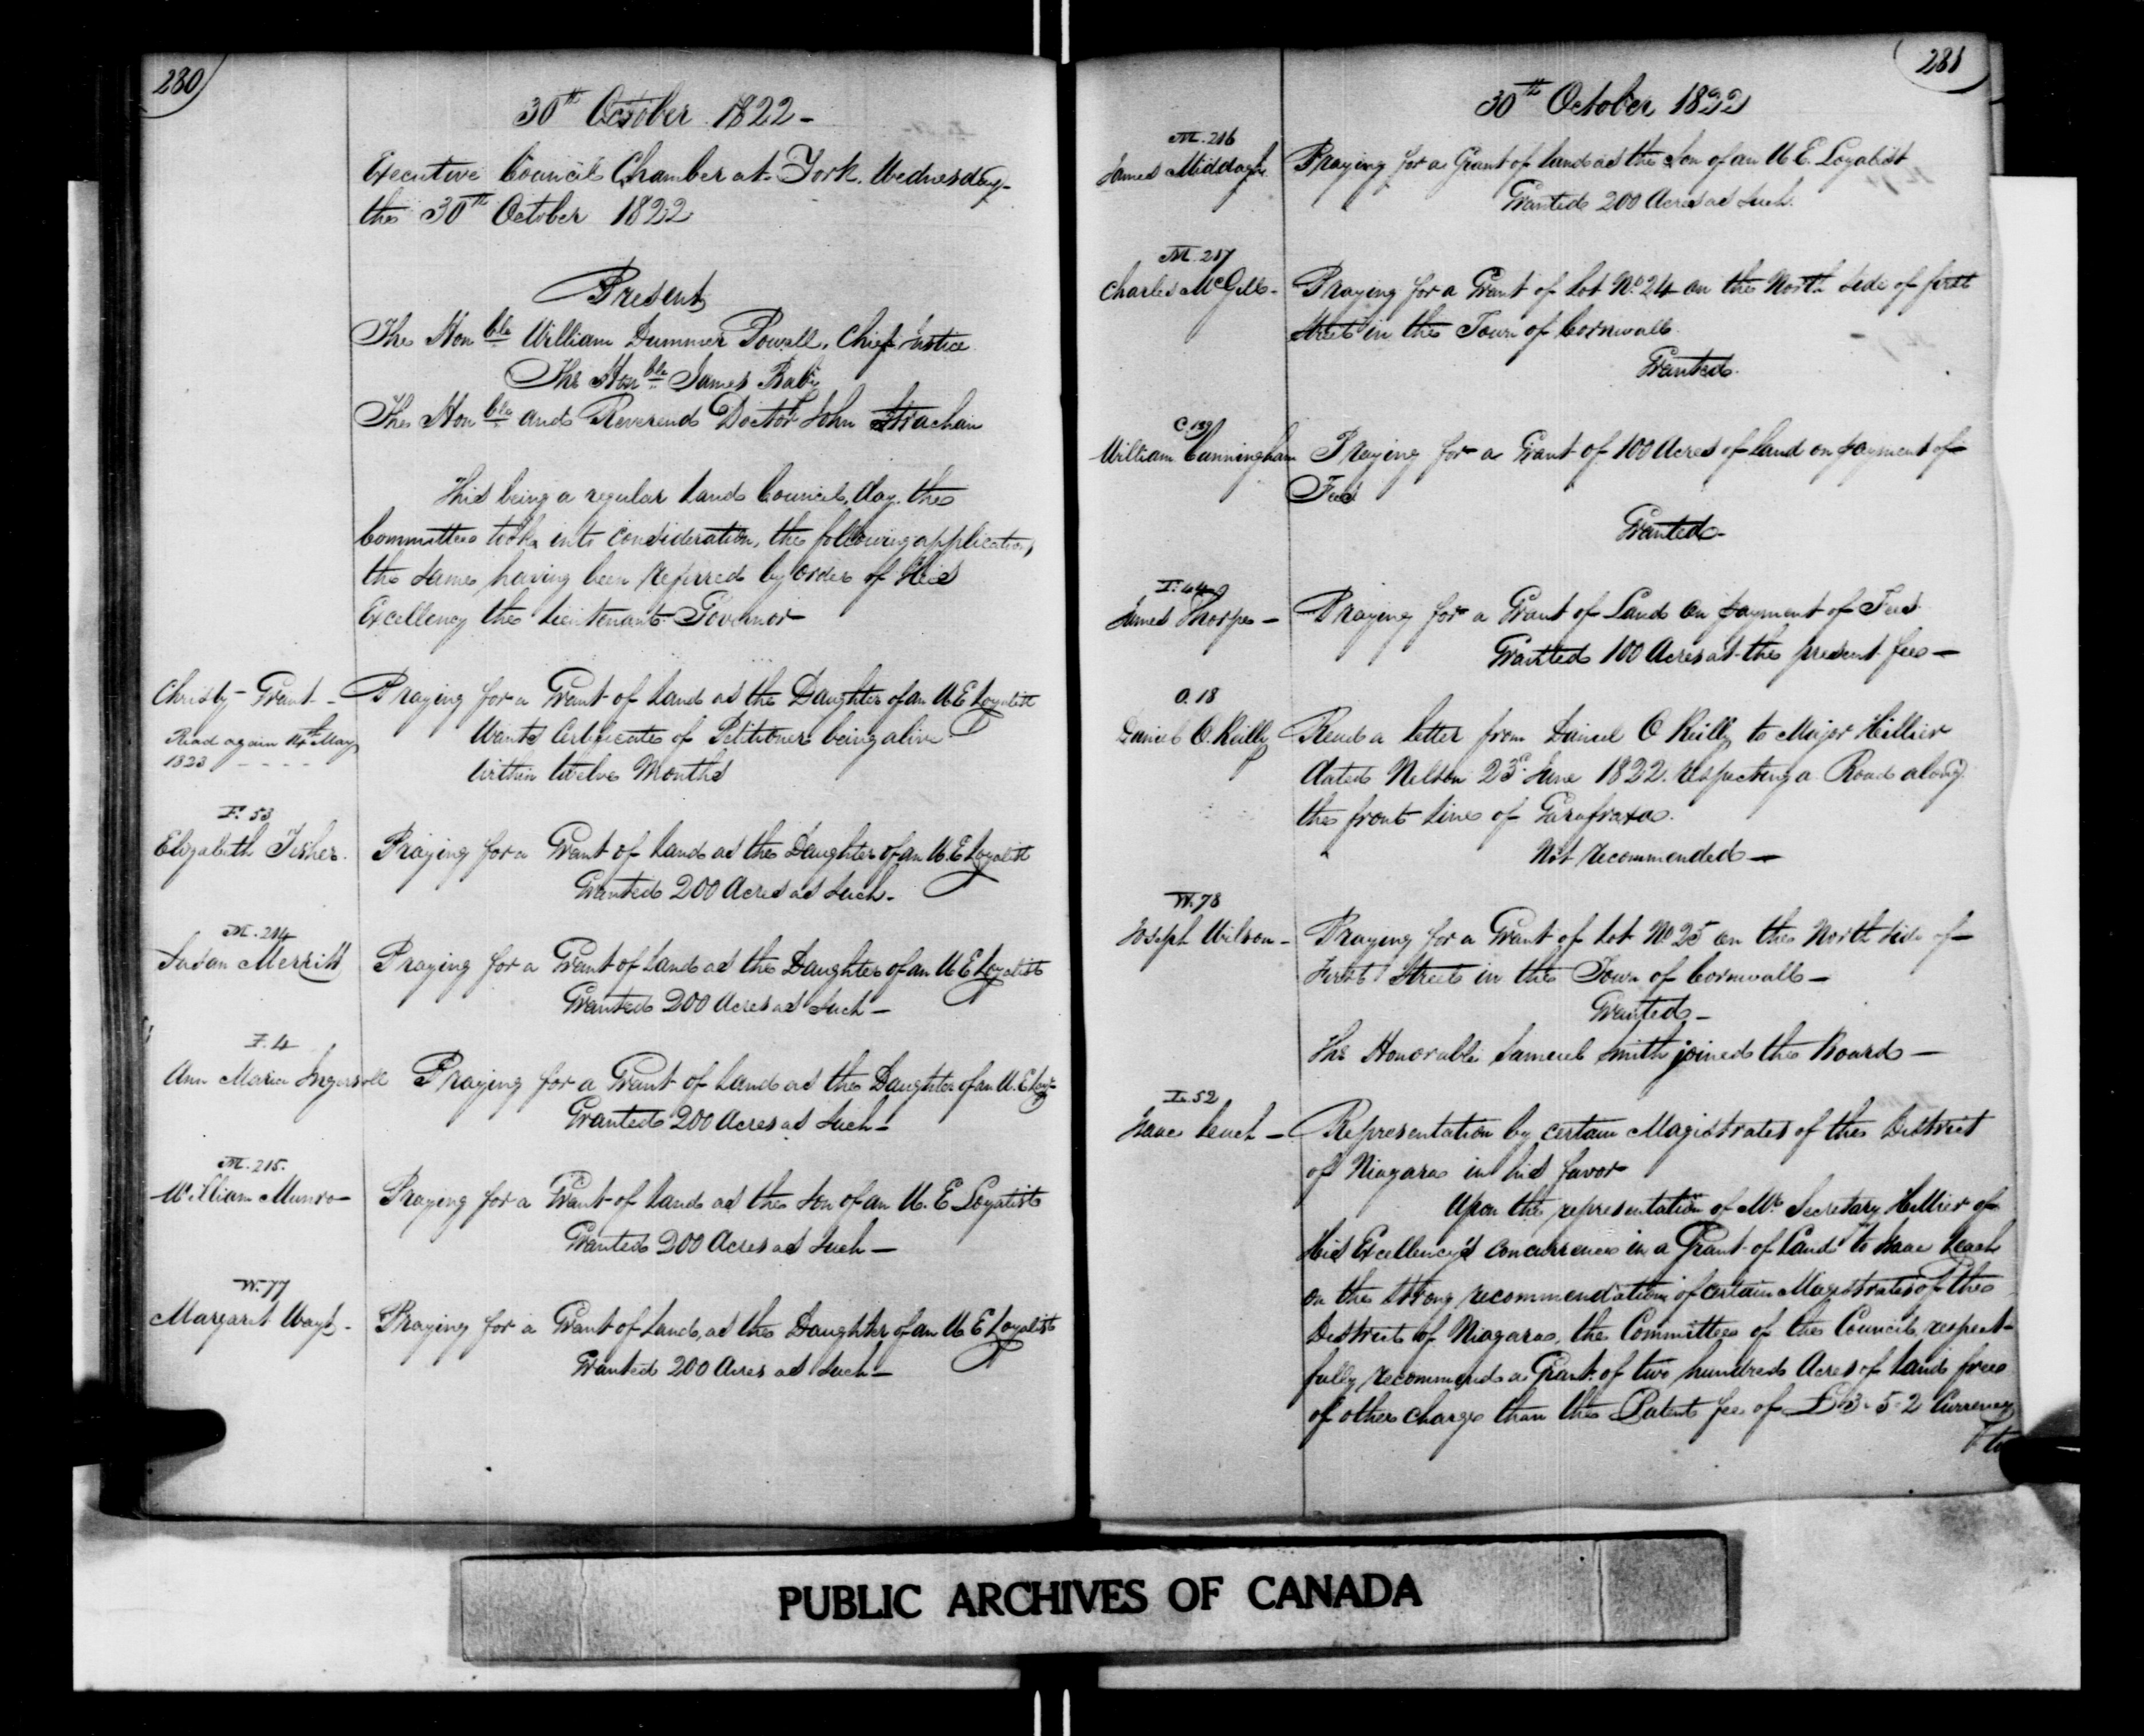 280
30th October 1822 -
Executive Council Chamber at York, Wednesday
the 30th October 1822
Present
The Honble William Dummer Powell, Chief Justice
The Honble James Baby
The Honble and Reverend Doctor John Strachan
This being a regular Land Council day, the
Committee took into consideration, the following application,
the same having been referred by order of His
Excellency the Lieutenant Governor
Christy Grant - Praying for a Grant of Land as the Daughter of an U E Loyalist
Read again 14th May
1823 - - - -
Wants Certificate of Petitioner being alive
within twelve Months
F. 53
Elizabeth Fisher. Praying for a Grant of Land as the Daughter of an U. E Loyalist
Granted 200 Acres as such -
M. 214
Susan Merritt Praying for a Grant of Land as the Daughter of an U E Loyalist
Granted 200 Acres as such -
I. 4
Ann Maria Ingersoll Praying for a Grant of Land as the Daughter of an U. E Loyt
Granted 200 Acres as such -
M. 215.
William Munro Praying for a Grant of Land as the Son of an U. E Loyalist
Granted 200 Acres as such -
W. 77
Margaret - Praying for a Grant of Land, as the Daughter of an U E Loyalist
Granted 200 Acres as such -
281
30th October 1822
M. 216
James Middagh Praying for a Grant of Land as the Son of an U E. Loyalist
Granted 200 Acres as such.
M. 217
Charles McGill - Praying for a Grant of Lot No. 24 on the North side of first
street in the Town of Cornwall
Granted.
C. 139
William Cunningham Praying for a Grant of 100 Acres of Land on payment of
Fees
Granted -
T. 44
James Thorpe - Praying for a Grant of Land on payment of Fees
Granted 100 Acres at the present fees -
O. 18
Daniel O. Reilly Read a letter from Daniel O Reilly to Major Hillier
dated Nelson 23rd June 1822. respecting a Road along
the front line of Garafraxa.
Not recommended -
W. 78
Joseph Wilson - Praying for a Grant of Lot No 25 on the North side of
First Street in the Town of Cornwall -
Granted -
The Honorable Samuel Smith joined the Board -
L. 52
Isaac Leach - Representation by certain Magistrates of the District
of Niagara in his favor
Upon the representation of Mr Secretary Hillier of
His Excellency's concurrence in a Grant of Land to Isaac Leach
on the strong recommendation of certain Magistrates of the
District of Niagara, the Committee of the Council, respect-
fully recommends a Grant of two hundred Acres of Land free
of other charge than the Patent fee of £3.5.2 Currency
to
PUBLIC ARCHIVES OF CANADA